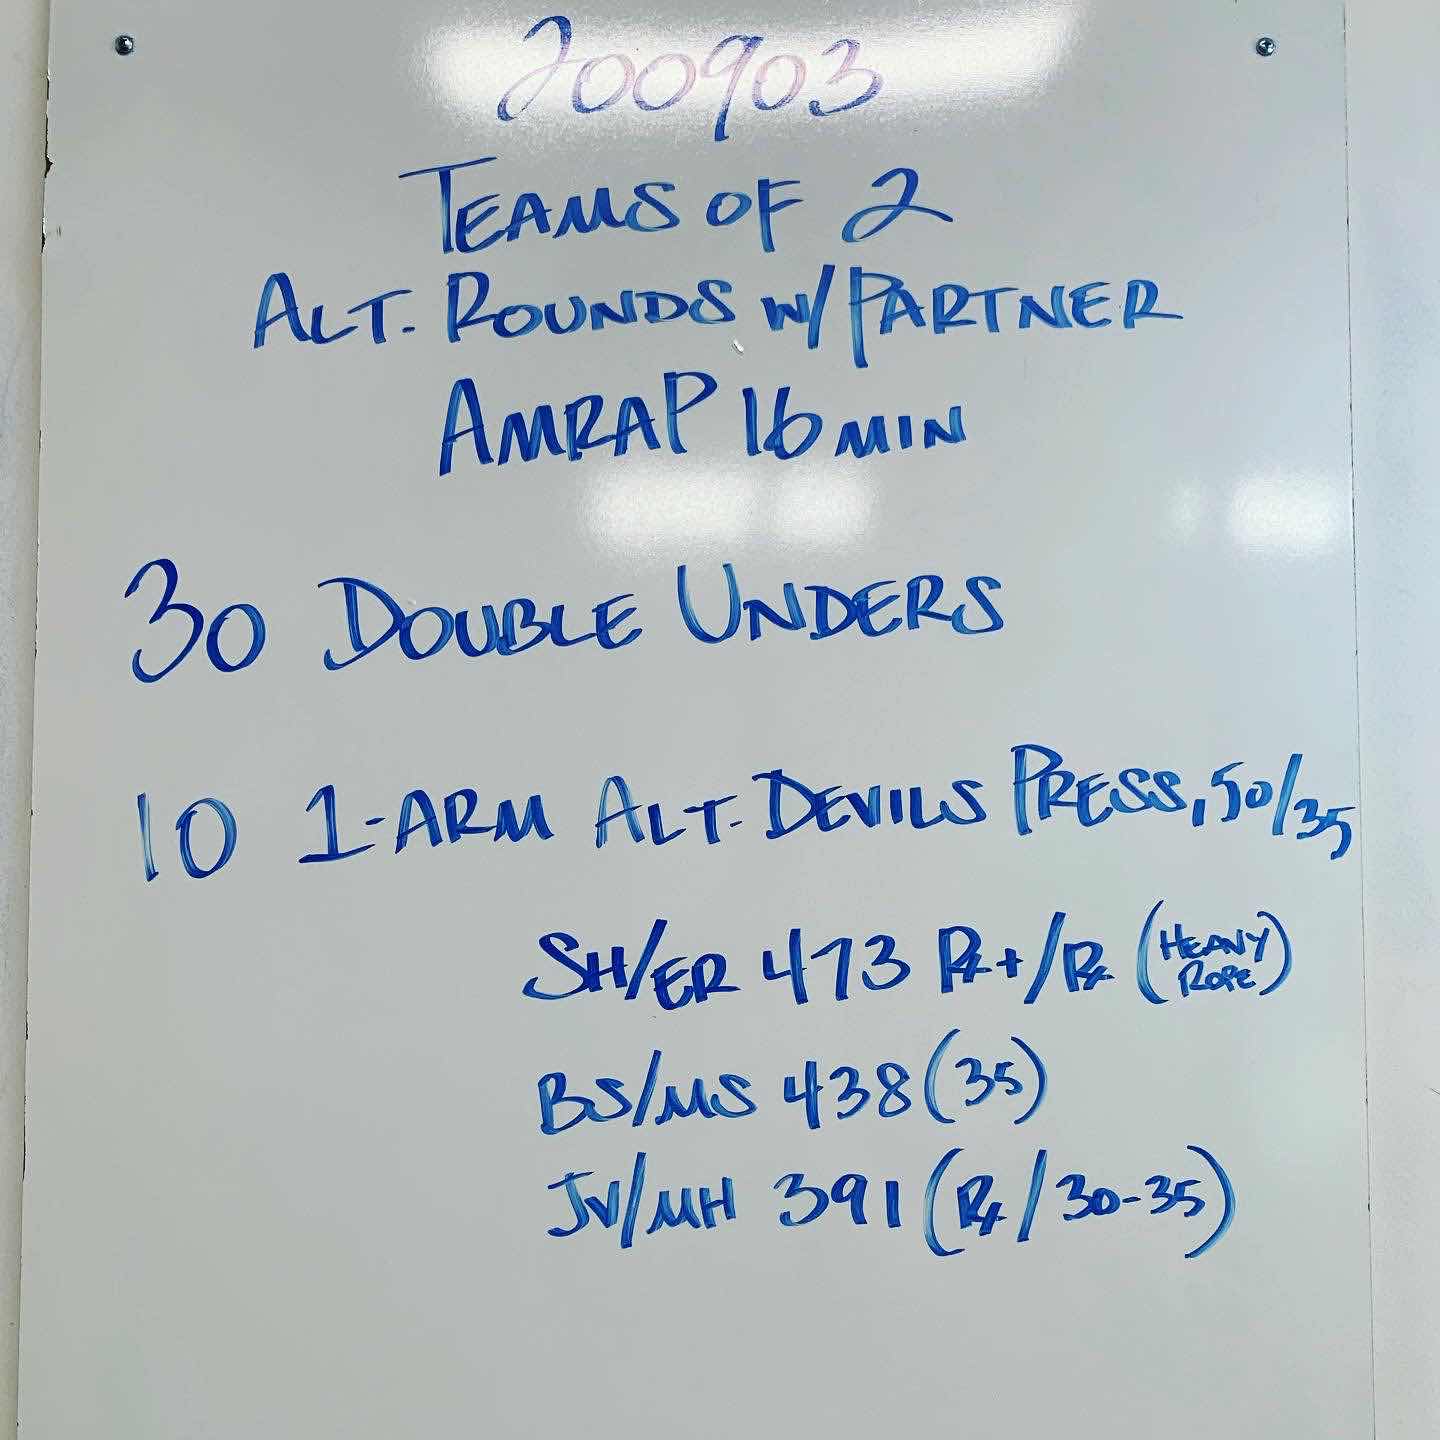 200903
TEAMS OF 2
ALT. ROUNDS W/ PARTNER
AMRAP 16 MIN
30 DOUBLE UNDERS
10 1-ARM ALT. DEVILS PRESS, 50/35
SH/ER 473 Rx+/Rx (HEAVY ROPE)
BS/MS 438 (35)
JV/MH 391 (Rx/30-35)